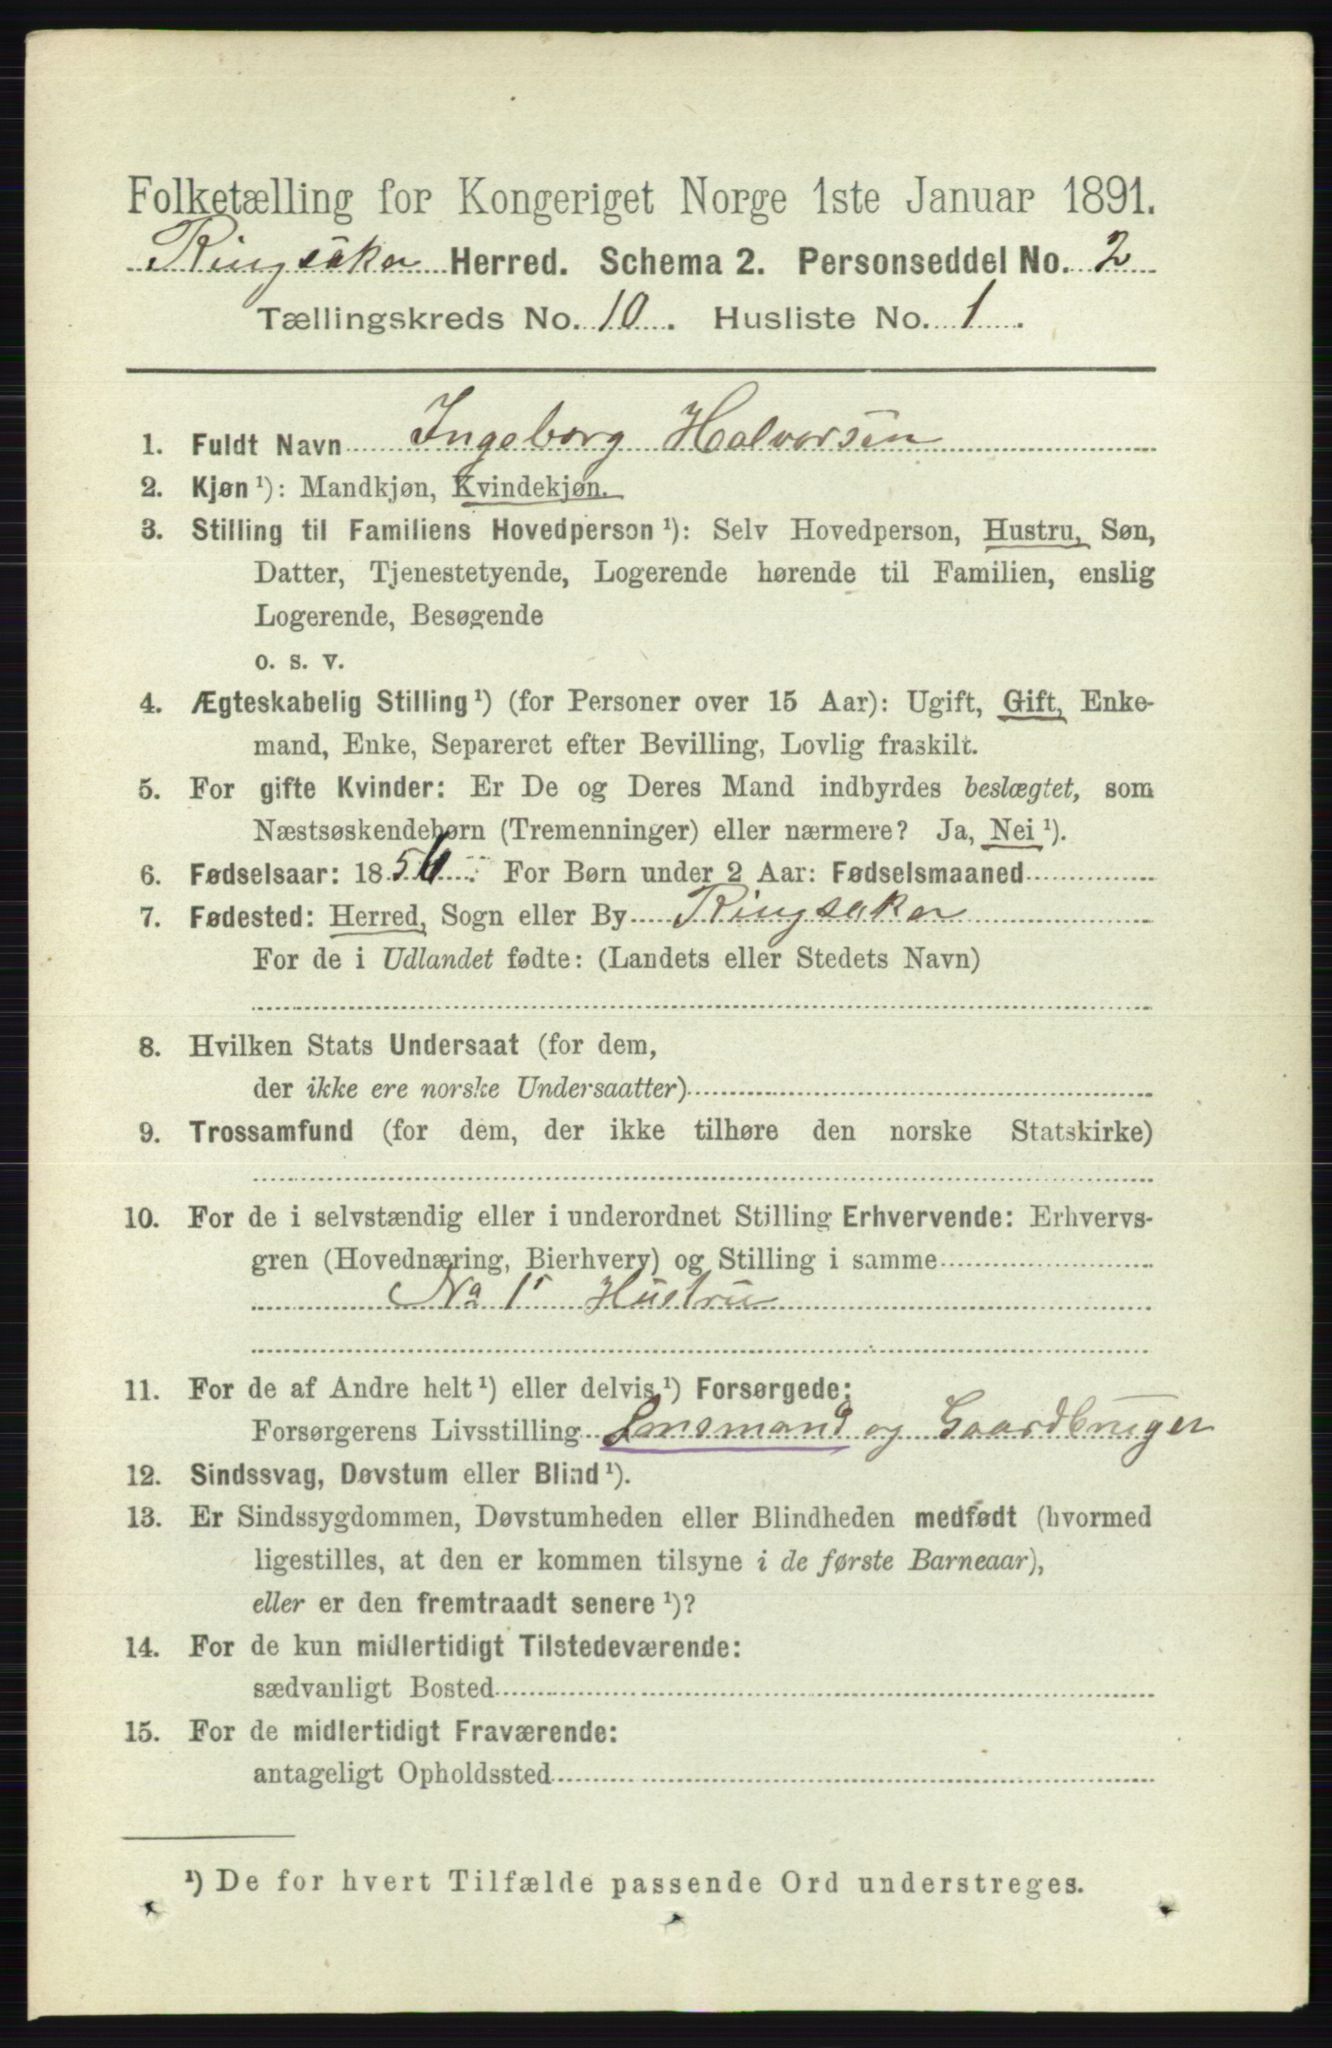 Folketælling for Kongeriget Norge 1ste Januar 1891.
Ringsaker Herred. Schema 2. Personseddel No. 2
Tællingskreds No. 10. Husliste No. 1.
1. Fuldt Navn Ingeborg Halvorsen
2. Kjøn ¹): Mandkjøn, Kvindekjøn.
3. Stilling til Familiens Hovedperson ¹): Selv Hovedperson, Hustru, Søn,
Datter, Tjenestetyende, Logerende hørende til Familien, enslig
Logerende, Besøgende
o. s. v.
4. Ægteskabelig Stilling ¹) (for Personer over 15 Aar): Ugift, Gift, Enke-
mand, Enke, Separeret efter Bevilling, Lovlig fraskilt.
5. For gifte Kvinder: Er De og Deres Mand indbyrdes beslægtet, som
Næstsøskendebørn (Tremenninger) eller nærmere? Ja, Nei ¹).
6. Fødselsaar: 1856. For Børn under 2 Aar: Fødselsmaaned
7. Fødested: Herred, Sogn eller By Ringsaker
For de i Udlandet fødte: (Landets eller Stedets Navn)
8. Hvilken Stats Undersaat (for dem,
der ikke ere norske Undersaatter)
9. Trossamfund (for dem, der ikke tilhøre den norske Statskirke)
10. For de i selvstændig eller i underordnet Stilling Erhvervende: Erhvervs-
gren (Hovednæring, Bierhverv) og Stilling i samme
No 1s Hustru
11. For de af Andre helt ¹) eller delvis ¹) Forsørgede:
Forsørgerens Livsstilling Lensmand og Gaardbruger
12. Sindssvag, Døvstum eller Blind ¹).
13. Er Sindssygdommen, Døvstumheden eller Blindheden medfødt (hvormed
ligestilles, at den er kommen tilsyne i de første Barneaar),
eller er den fremtraadt senere ¹)?
14. For de kun midlertidigt Tilstedeværende:
sædvanligt Bosted
15. For de midlertidigt Fraværende:
antageligt Opholdssted
¹) De for hvert Tilfælde passende Ord understreges.